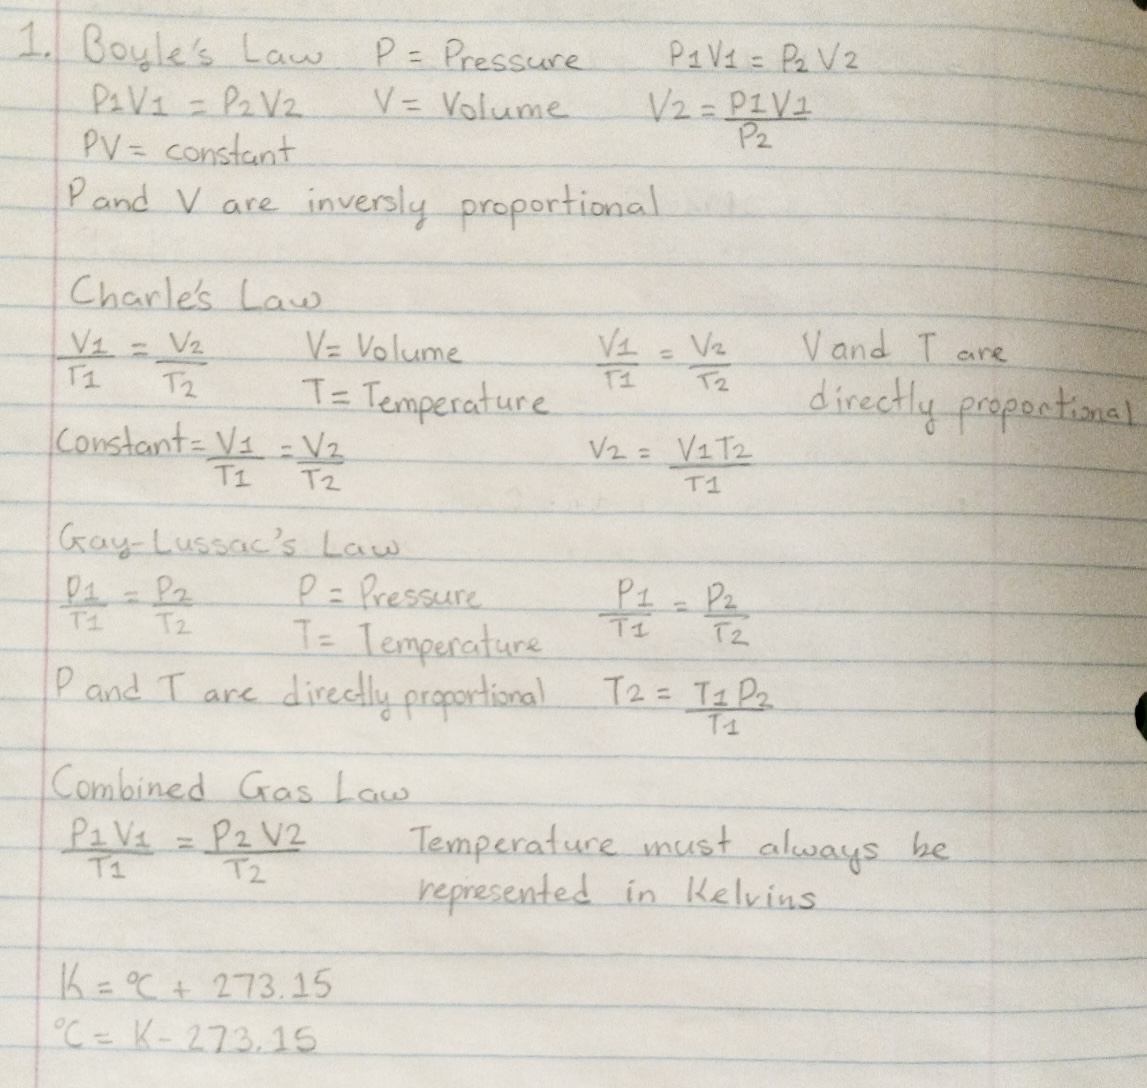 1. Boyle's Law P = Pressure P1V1 = P2V2
P1V1 = P2V2 V = Volume V2 = P1V1/P2
PV = constant
P and V are inversly proportional
Charle's Law
V1/T1 = V2/T2 V = Volume V1/T1 = V2/T2 V and T are
T = Temperature directly proportional
Constant = V1/T1 = V2/T2 V2 = V1T2/T1
Gay-Lussac's Law
P1/T1 = P2/T2 P = Pressure P1/T1 = P2/T2
T = Temperature
P and T are directly proportional T2 = T1P2/T1
Combined Gas Law
P1V1/T1 = P2V2/T2 Temperature must always be
represented in Kelvins
K = °C + 273.15
°C = K - 273.15